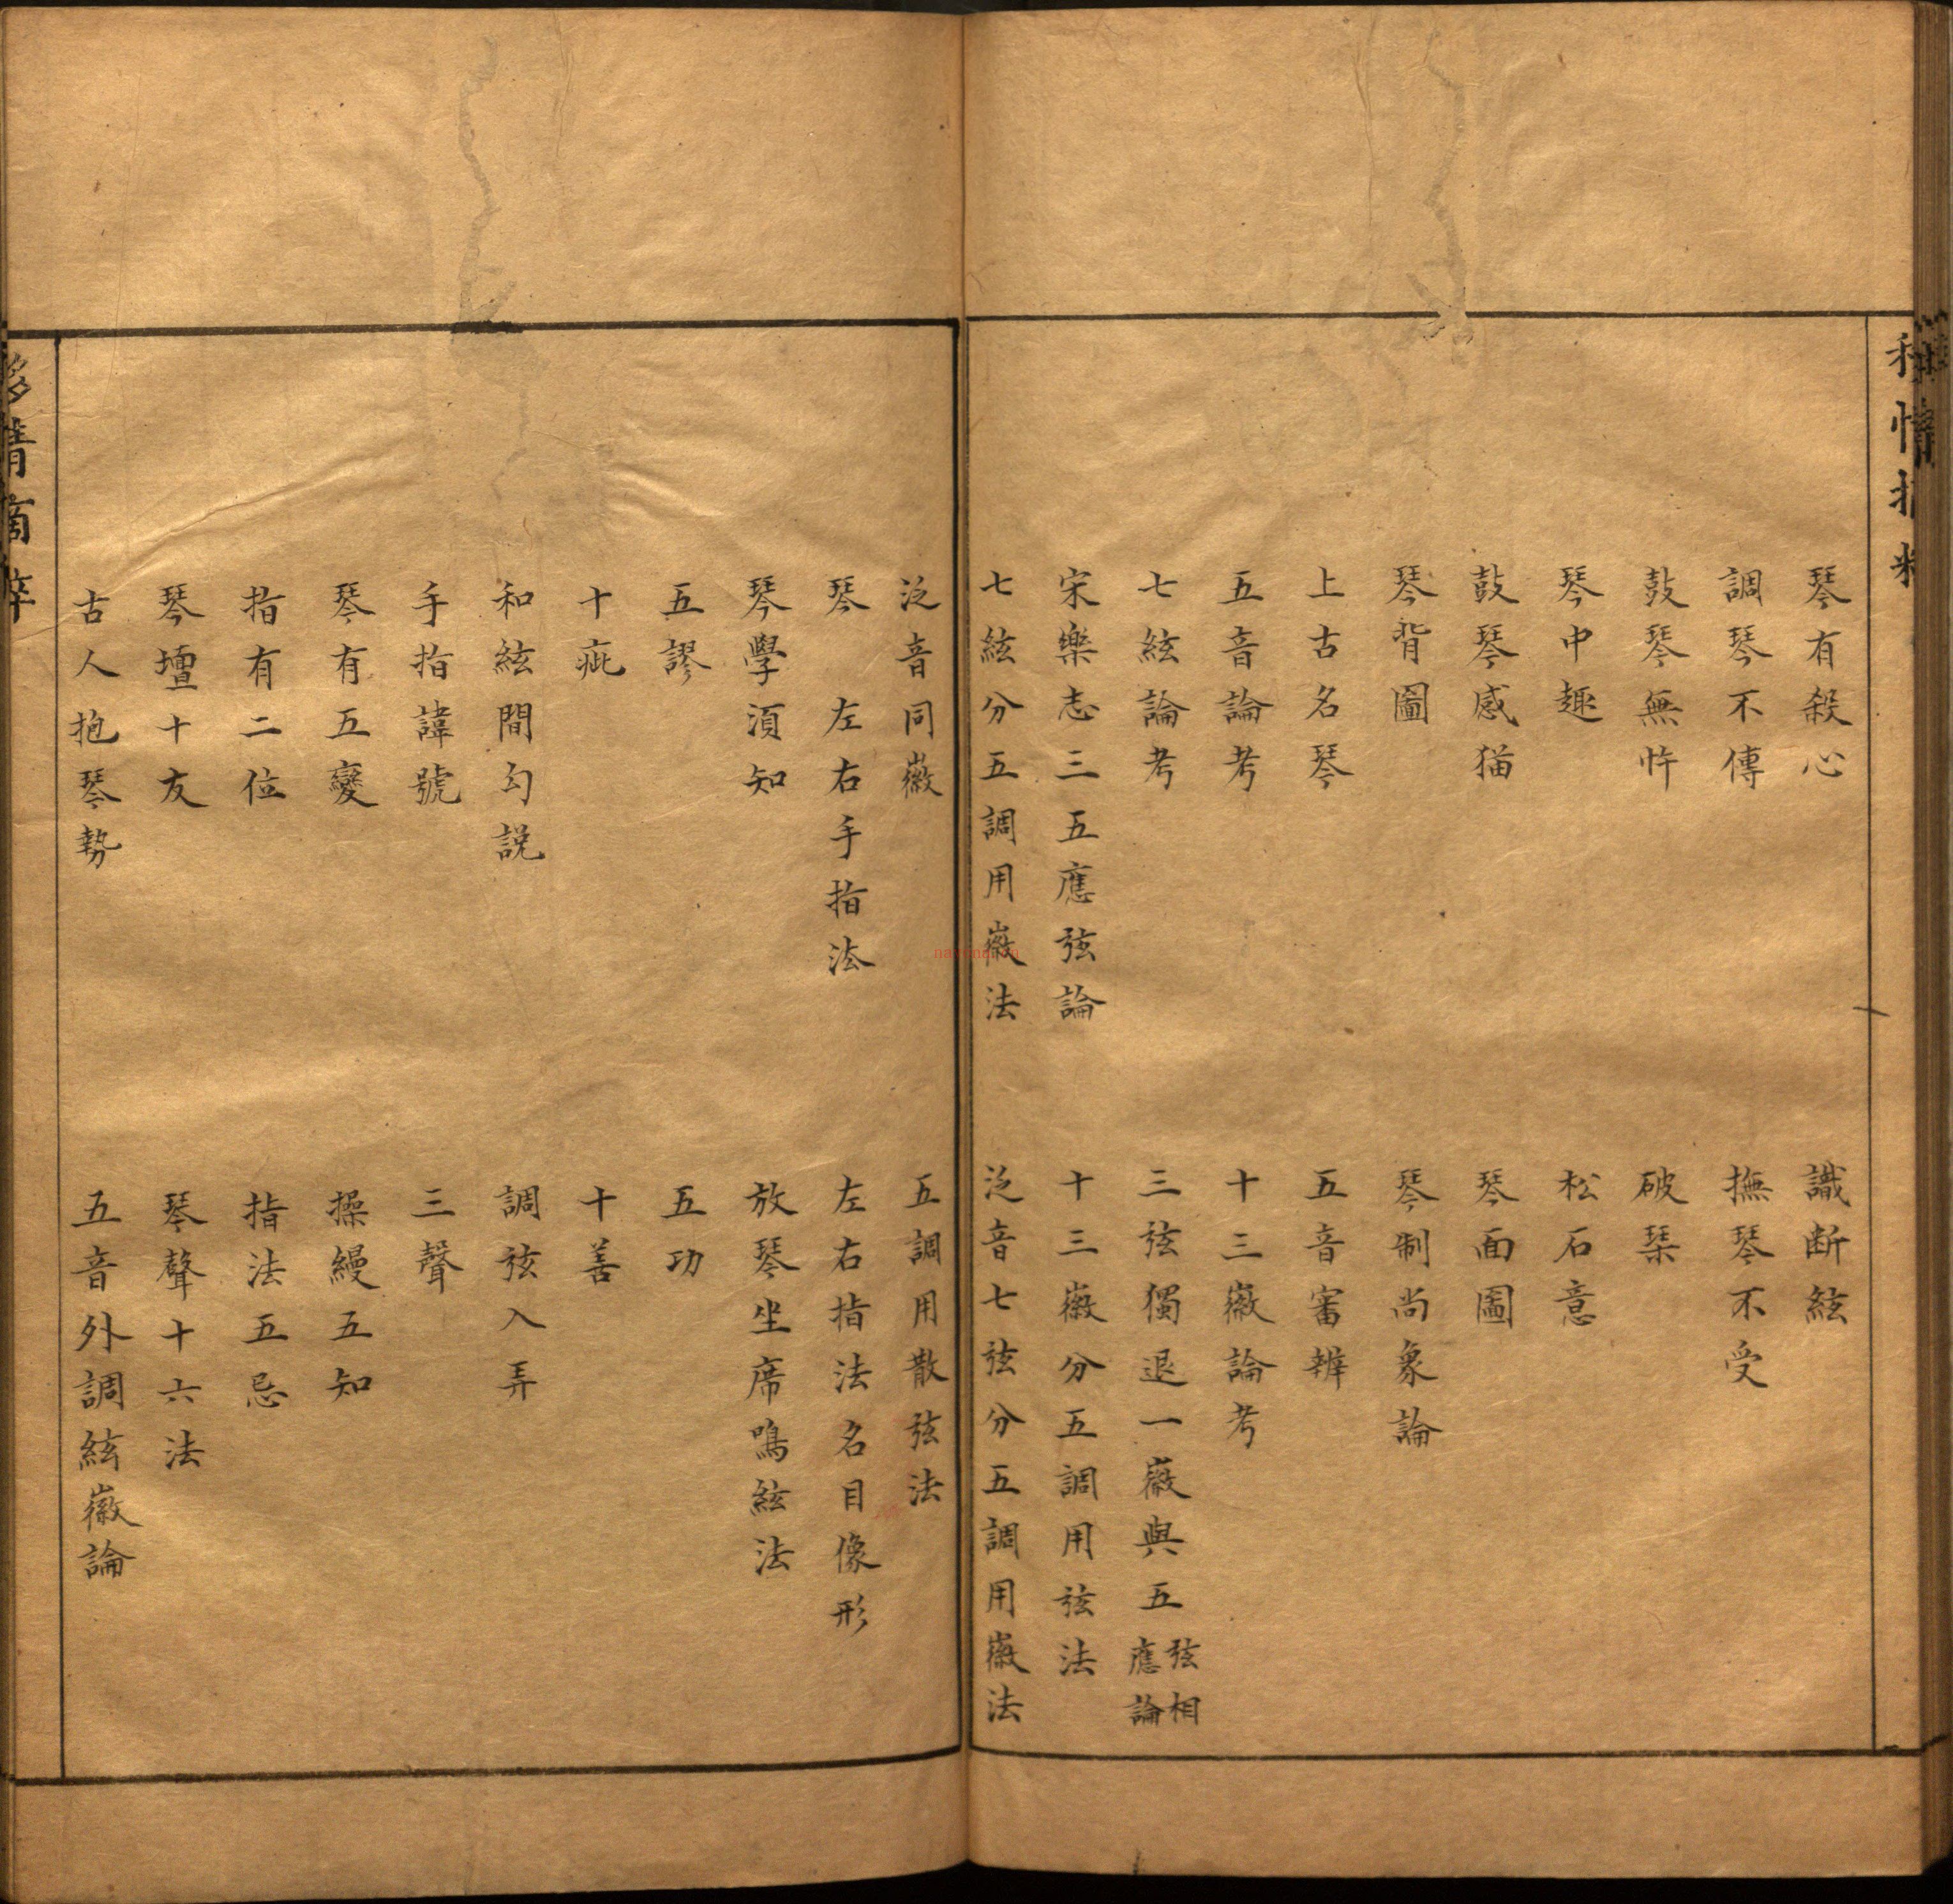 琴有殺心 識断絃
調琴不傳 撫琴不受
鼓琴無忤 破琹
琴中趣 松石意
鼓琴感猫 琴面圖
琴背圖 琴制尚象論
上古名琴 五音審辨
五音論考 十三徽論考
七絃論考 三弦獨退一徽與五弦相應論
宋樂志三五應弦論 十三徽分五調用弦法
七絃分五調用徽法 泛音七弦分五調用徽法
泛音同徽 五調用散弦法
琴 左右手指法 左右指法名目像形
琴學須知 放琴坐席鳴絃法
五謬 五功
十疵 十善
和絃間勾説 調弦入弄
手指諱號 三聲
琴有五變 操縵五知
指有二位 指法五忌
琴壇十友 琴聲十六法
古人抱琴勢 五音外調絃徽論
移情摘粹